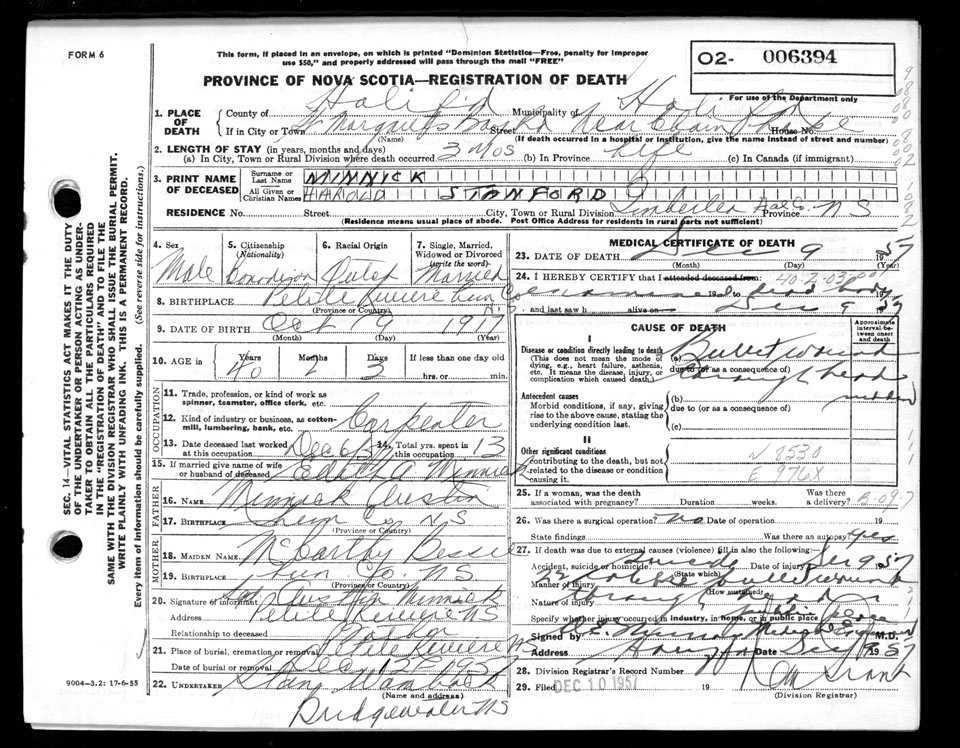 FORM 6
This form, if placed in an envelope, on which is printed "Dominion Statistics—Free, penalty for improper
use $50," and properly addressed will pass through the mail "FREE"
O2- 006394
PROVINCE OF NOVA SCOTIA—REGISTRATION OF DEATH
For use of the Department only
1. PLACE OF DEATH
County of Halifax Municipality of Halifax
If in City or Town St Margarets Bay Rd Street Near House No.
(Name) (If death occurred in a hospital or institution, give the name instead of street and number)
2. LENGTH OF STAY (in years, months and days)
(a) In City, Town or Rural Division where death occurred 3 mos (b) In Province Life (c) In Canada (if immigrant)
3. PRINT NAME OF DECEASED
Surname or Last Name MINNICK
All Given or Christian Names HAROLD STANFORD
RESIDENCE No. Street City, Town or Rural Division Timberlea Hal. Co. Province NS
(Residence means usual place of abode. Post Office Address for Residents in rural parts not sufficient)
4. Sex Male
5. Citizenship (Nationality) Canadian
6. Racial Origin Dutch
7. Single, Married, Widowed or Divorced (write the word) Married
8. BIRTHPLACE Petite Riviere Lun Co NS
(Province or Country)
9. DATE OF BIRTH Oct 9 1917
(Month) (Day) (Year)
10. AGE in Years Months Days If less than one day old
40 2 3 hrs. or min.
OCCUPATION
11. Trade, profession, or kind of work as spinner, teamster, office clerk, etc.
12. Kind of industry or business, as cotton-mill, lumbering, bank, etc. Carpenter
13. Date deceased last worked at this occupation Dec 6/57 14. Total yrs. spent in this occupation 13
15. If married give name of wife or husband of deceased Edith A Minnick
FATHER
16. NAME Minnick Austin
17. BIRTHPLACE Lun Co NS
(Province or Country)
MOTHER
18. MAIDEN NAME McCarthy Bessie
19. BIRTHPLACE Lun Co. NS.
(Province or Country)
20. Signature of informant Austin Minnick
Address Petite Riviere NS
Relationship to deceased
21. Place of burial, cremation or removal Petite Riviere NS
Date of burial or removal Dec 12 1957
22. UNDERTAKER
(Name and address)
Bridgewater NS
MEDICAL CERTIFICATE OF DEATH
23. DATE OF DEATH Dec 9 1957
(Month) (Day) (Year)
24. I HEREBY CERTIFY that I attended deceased from 40-2-03
examined 19 to dead body 19
and last saw h alive on Dec 9 1957
CAUSE OF DEATH
Approximate interval between onset and death
I
Disease or condition directly leading to death (a) Bullet wound
(This does not mean the mode of dying, e.g., heart failure, asthenia, etc. It means the disease, injury, or complication which caused death.)
due to (or as a consequence of) through head
Antecedent causes (b)
Morbid conditions, if any, giving rise to the above cause, stating the underlying condition last.
due to (or as a consequence of)
(c)
II
Other significant conditions contributing to the death, but not related to the disease or condition causing it.
N 853.0
E 976X
25. If a woman, was the death associated with pregnancy? Duration weeks. Was there delivery?
26. Was there a surgical operation? no Date of operation 19
State findings Was there an autopsy? yes
27. If death was due to external causes (violence) fill in also the following:
Accident, suicide or homicide. Suicide Date of injury Dec 9 1957
(State which)
Manner of injury bullet wound
(How sustained)
Nature of injury through head
Specify whether injury occurred in industry, in home, or in public place public place
Signed by M.D.
Address Date Dec 9 1957
28. Division Registrar's Record Number
29. Filed DEC 10 1957 19 Grant
(Division Registrar)
SEC. 14—VITAL STATISTICS ACT MAKES IT THE DUTY
OF THE UNDERTAKER OR PERSON ACTING AS UNDER-
TAKER TO OBTAIN ALL THE PARTICULARS REQUIRED
IN THE "REGISTRATION OF DEATH" AND TO FILE THE
SAME WITH THE DIVISION REGISTRAR WHO SHALL ISSUE THE BURIAL PERMIT.
WRITE PLAINLY WITH UNFADING INK. THIS IS A PERMANENT RECORD.
Every item of information should be carefully supplied. (See reverse side for instructions.)
9004-3.2: 17-6-55